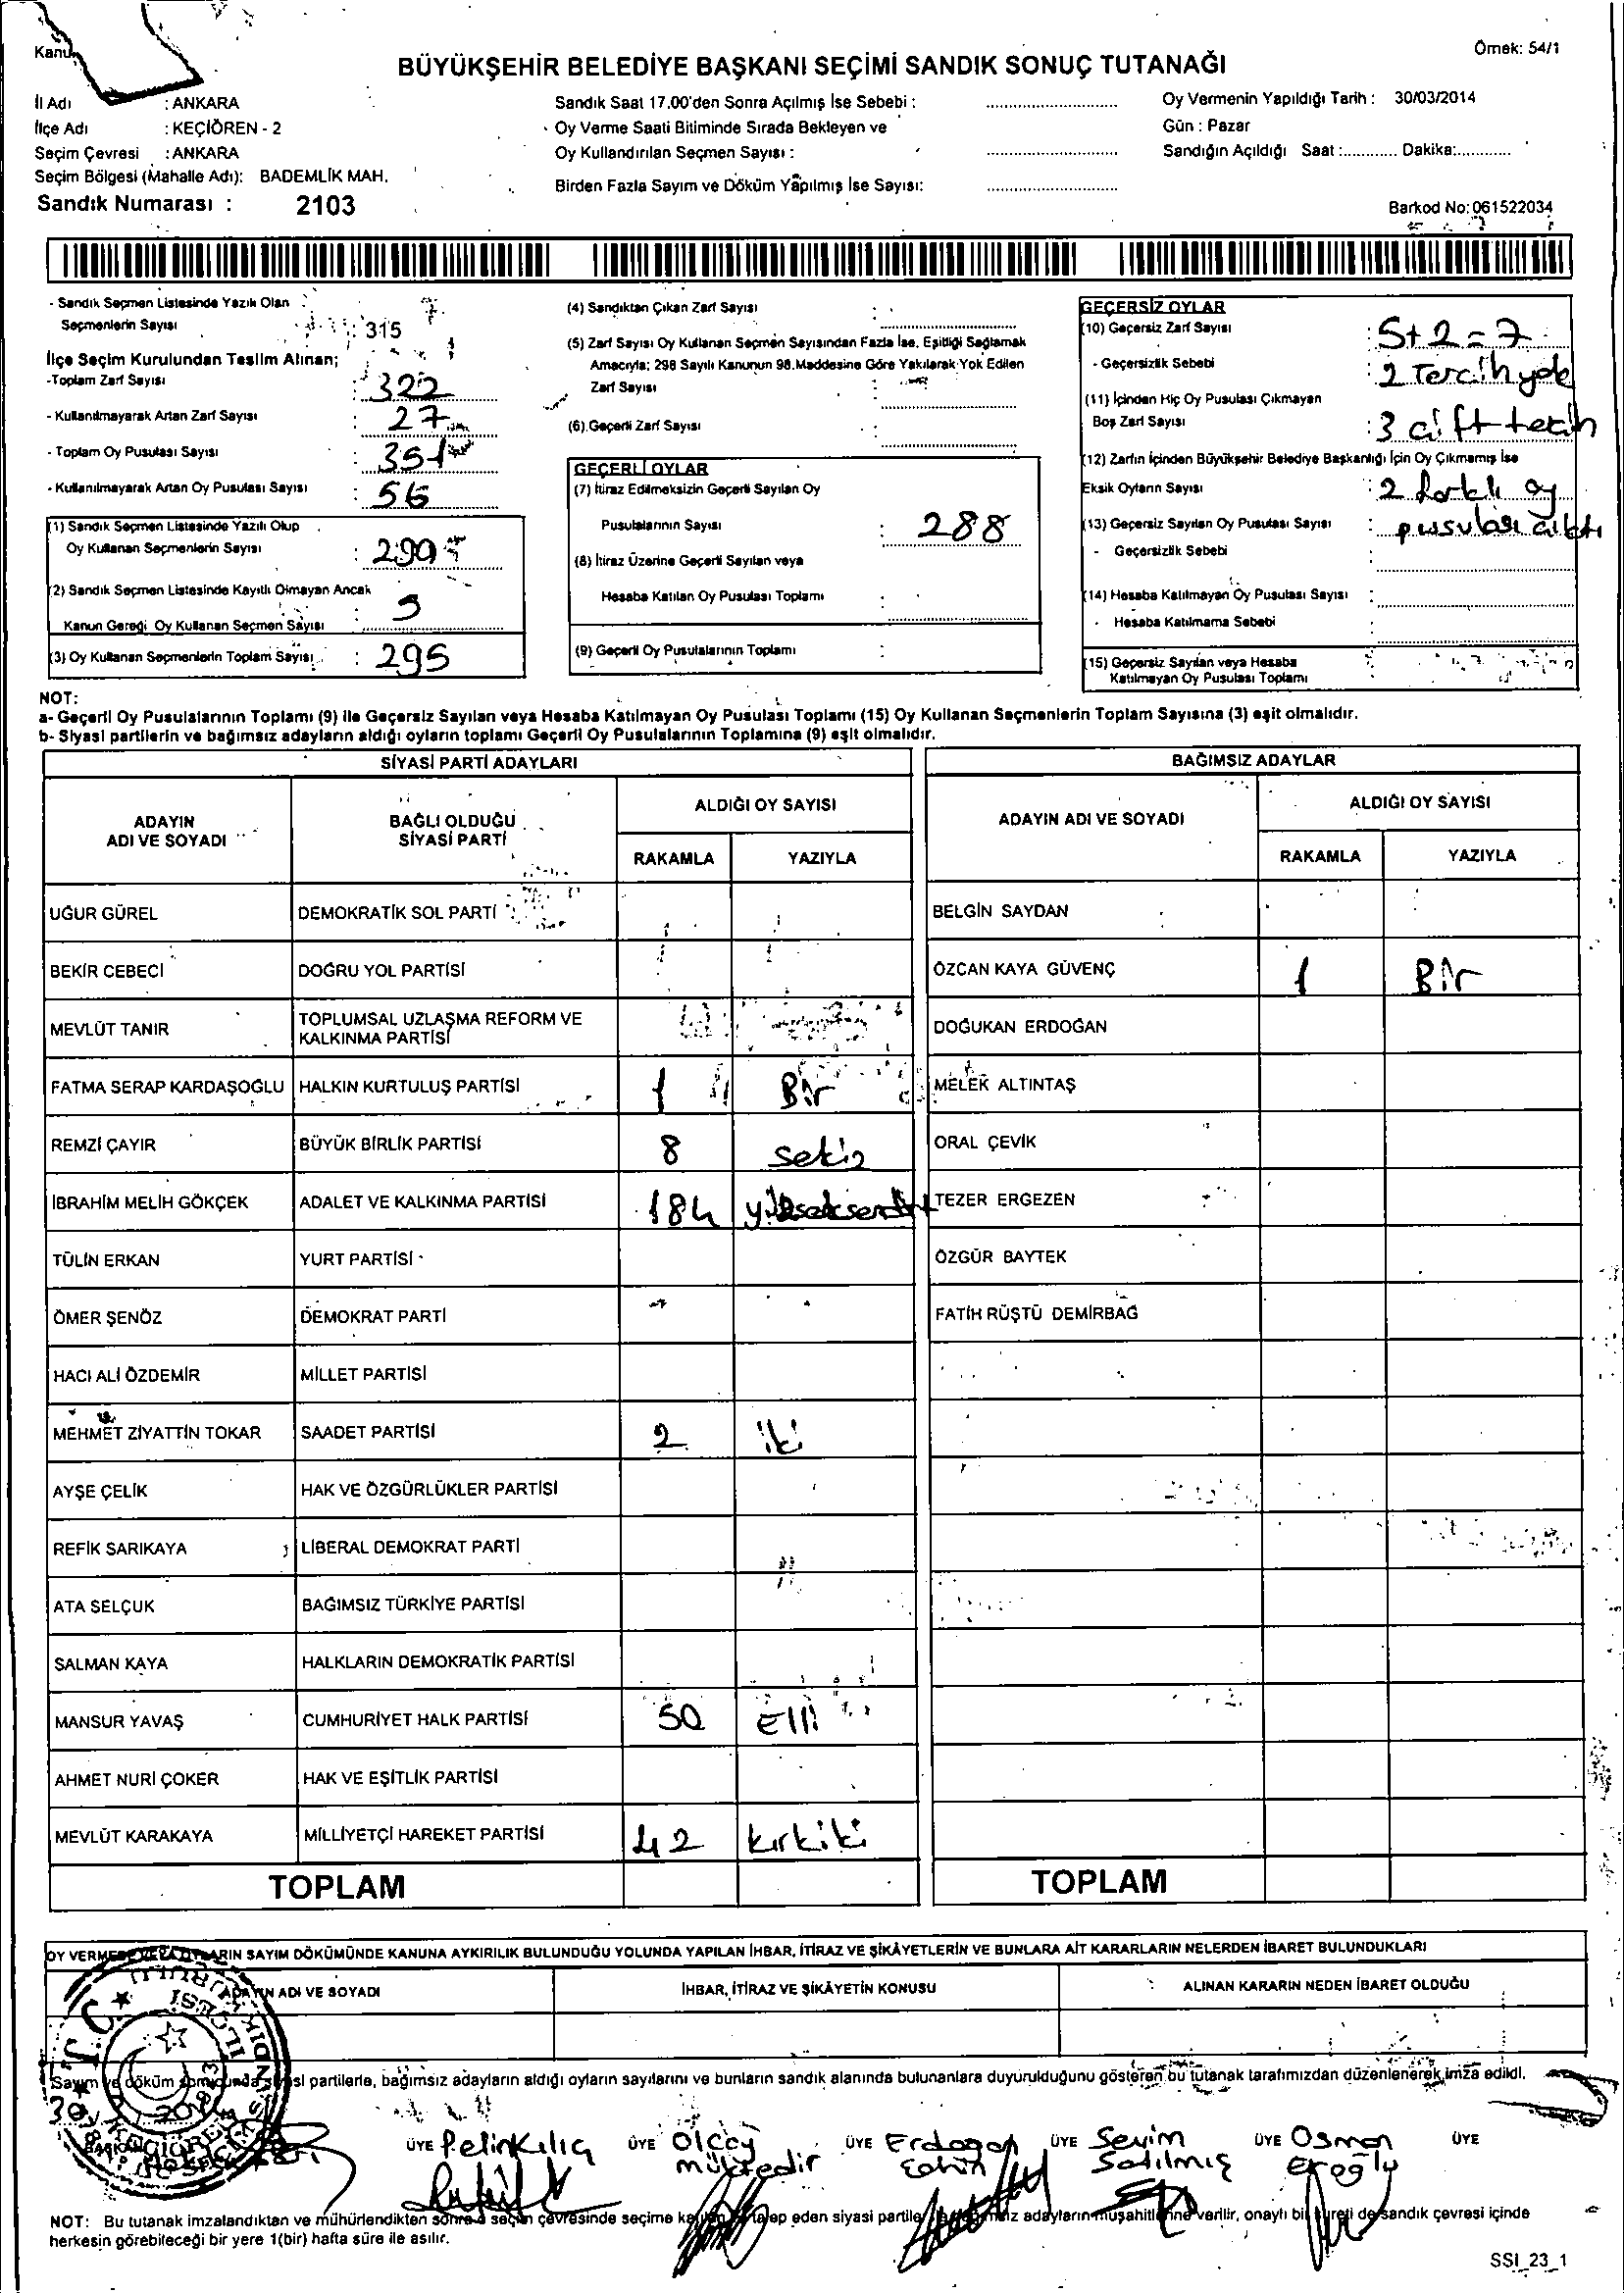 Kanu
Örnek: 54/1
BÜYÜKŞEHİR BELEDİYE BAŞKANI SEÇİMİ SANDIK SONUÇ TUTANAĞI
İl Adı : ANKARA
İlçe Adı : KEÇİÖREN - 2
Seçim Çevresi : ANKARA
Seçim Bölgesi (Mahalle Adı): BADEMLİK MAH.
Sandık Numarası : 2103
Sandık Saat 17.00'den Sonra Açılmış İse Sebebi :
Oy Verme Saati Bitiminde Sırada Bekleyen ve
Oy Kullandırılan Seçmen Sayısı :
Birden Fazla Sayım ve Döküm Yapılmış İse Sayısı:
Oy Vermenin Yapıldığı Tarih : 30/03/2014
Gün : Pazar
Sandığın Açıldığı Saat :............ Dakika:............
Barkod No: 061522034
- Sandık Seçmen Listesinde Yazılı Olan
Seçmenlerin Sayısı : 315
İlçe Seçim Kurulundan Teslim Alınan;
-Toplam Zarf Sayısı : 322
- Kullanılmayarak Artan Zarf Sayısı : 27
- Toplam Oy Pusulası Sayısı : 351
- Kullanılmayarak Artan Oy Pusulası Sayısı : 56
(1) Sandık Seçmen Listesinde Yazılı Olup
Oy Kullanan Seçmenlerin Sayısı : 290
(2) Sandık Seçmen Listesinde Kayıtlı Olmayan Ancak
Kanun Gereği Oy Kullanan Seçmen Sayısı 5
(3) Oy Kullanan Seçmenlerin Toplam Sayısı : 295
(4) Sandıktan Çıkan Zarf Sayısı :
(5) Zarf Sayısı Oy Kullanan Seçmen Sayısından Fazla İse, Eşitliği Sağlamak
Amacıyla; 298 Sayılı Kanunun 98.Maddesine Göre Yakılarak Yok Edilen
Zarf Sayısı :
(6) Geçerli Zarf Sayısı :
GEÇERLİ OYLAR
(7) İtiraz Edilmeksizin Geçerli Sayılan Oy
Pusulalarının Sayısı : 288
(8) İtiraz Üzerine Geçerli Sayılan veya
Hesaba Katılan Oy Pusulası Toplamı :
(9) Geçerli Oy Pusulalarının Toplamı :
GEÇERSİZ OYLAR
(10) Geçersiz Zarf Sayısı : 5+2=7
- Geçersizlik Sebebi : 2 Tercih yok
(11) İçinden Hiç Oy Pusulası Çıkmayan
Boş Zarf Sayısı : 3 çift tercih
(12) Zarfın İçinden Büyükşehir Belediye Başkanlığı İçin Oy Çıkmamış İse
Eksik Oyların Sayısı : 2 farklı oy
(13) Geçersiz Sayılan Oy Pusulası Sayısı : pusulası çıktı
- Geçersizlik Sebebi
(14) Hesaba Katılmayan Oy Pusulası Sayısı :
- Hesaba Katılmama Sebebi
(15) Geçersiz Sayılan veya Hesaba
Katılmayan Oy Pusulası Toplamı
NOT:
a- Geçerli Oy Pusulalarının Toplamı (9) ile Geçersiz Sayılan veya Hesaba Katılmayan Oy Pusulası Toplamı (15) Oy Kullanan Seçmenlerin Toplam Sayısına (3) eşit olmalıdır.
b- Siyasi partilerin ve bağımsız adayların aldığı oyların toplamı Geçerli Oy Pusulalarının Toplamına (9) eşit olmalıdır.
SİYASİ PARTİ ADAYLARI
ADAYIN ADI VE SOYADI BAĞLI OLDUĞU SİYASİ PARTİ ALDIĞI OY SAYISI
RAKAMLA YAZIYLA
UĞUR GÜREL DEMOKRATİK SOL PARTİ
BEKİR CEBECİ DOĞRU YOL PARTİSİ
MEVLÜT TANIR TOPLUMSAL UZLAŞMA REFORM VE KALKINMA PARTİSİ
FATMA SERAP KARDAŞOĞLU HALKIN KURTULUŞ PARTİSİ 1 Bir
REMZİ ÇAYIR BÜYÜK BİRLİK PARTİSİ 8 sekiz
İBRAHİM MELİH GÖKÇEK ADALET VE KALKINMA PARTİSİ 184 yüzseksendört
TÜLİN ERKAN YURT PARTİSİ
ÖMER ŞENÖZ DEMOKRAT PARTİ
HACI ALİ ÖZDEMİR MİLLET PARTİSİ
MEHMET ZİYATTİN TOKAR SAADET PARTİSİ 2 iki
AYŞE ÇELİK HAK VE ÖZGÜRLÜKLER PARTİSİ
REFİK SARIKAYA LİBERAL DEMOKRAT PARTİ
ATA SELÇUK BAĞIMSIZ TÜRKİYE PARTİSİ
SALMAN KAYA HALKLARIN DEMOKRATİK PARTİSİ
MANSUR YAVAŞ CUMHURİYET HALK PARTİSİ 50 Elli
AHMET NURİ ÇOKER HAK VE EŞİTLİK PARTİSİ
MEVLÜT KARAKAYA MİLLİYETÇİ HAREKET PARTİSİ 42 kırkiki
TOPLAM
BAĞIMSIZ ADAYLAR
ADAYIN ADI VE SOYADI ALDIĞI OY SAYISI
RAKAMLA YAZIYLA
BELGİN SAYDAN
ÖZCAN KAYA GÜVENÇ 1 Bir
DOĞUKAN ERDOĞAN
MELEK ALTINTAŞ
ORAL ÇEVİK
TEZER ERGEZEN
ÖZGÜR BAYTEK
FATİH RÜŞTÜ DEMİRBAĞ
TOPLAM
OY VERMEDE VEYA OYLARIN SAYIM DÖKÜMÜNDE KANUNA AYKIRILIK BULUNDUĞU YOLUNDA YAPILAN İHBAR, İTİRAZ VE ŞİKÂYETLERİN VE BUNLARA AİT KARARLARIN NELERDEN İBARET BULUNDUKLARI
ADAYIN ADI VE SOYADI İHBAR, İTİRAZ VE ŞİKÂYETİN KONUSU ALINAN KARARIN NEDEN İBARET OLDUĞU
Sayım ve döküm sonucunda siyasi partilerle, bağımsız adayların aldığı oyların sayılarını ve bunların sandık alanında bulunanlara duyurulduğunu gösteren bu tutanak tarafımızdan düzenlenerek imza edildi.
ÜYE Pelin Kılıç ÜYE Olcay ÜYE Erdoğan Şahin ÜYE Sevim Satılmış ÜYE Osman Eroğlu ÜYE
NOT: Bu tutanak imzalandıktan ve mühürlendikten sonra seçim çevresinde seçime katılan talep eden siyasi partiler bağımsız adayların müşahitlerine verilir, onaylı bir sureti de sandık çevresi içinde
herkesin görebileceği bir yere 1(bir) hafta süre ile asılır.
SSI_23_1